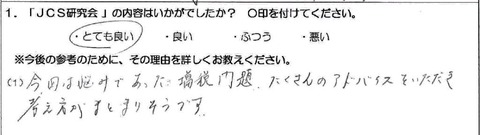 1. 「JCS研究会」の内容はいかがでしたか? ○印を付けてください。
・とても良い ・良い ・ふつう ・悪い
※今後の参考のために、その理由を詳しくお教えください。
(1) 今回は悩みであった 増税問題、たくさんのアドバイスをいただき
考え方がまとまりそうです